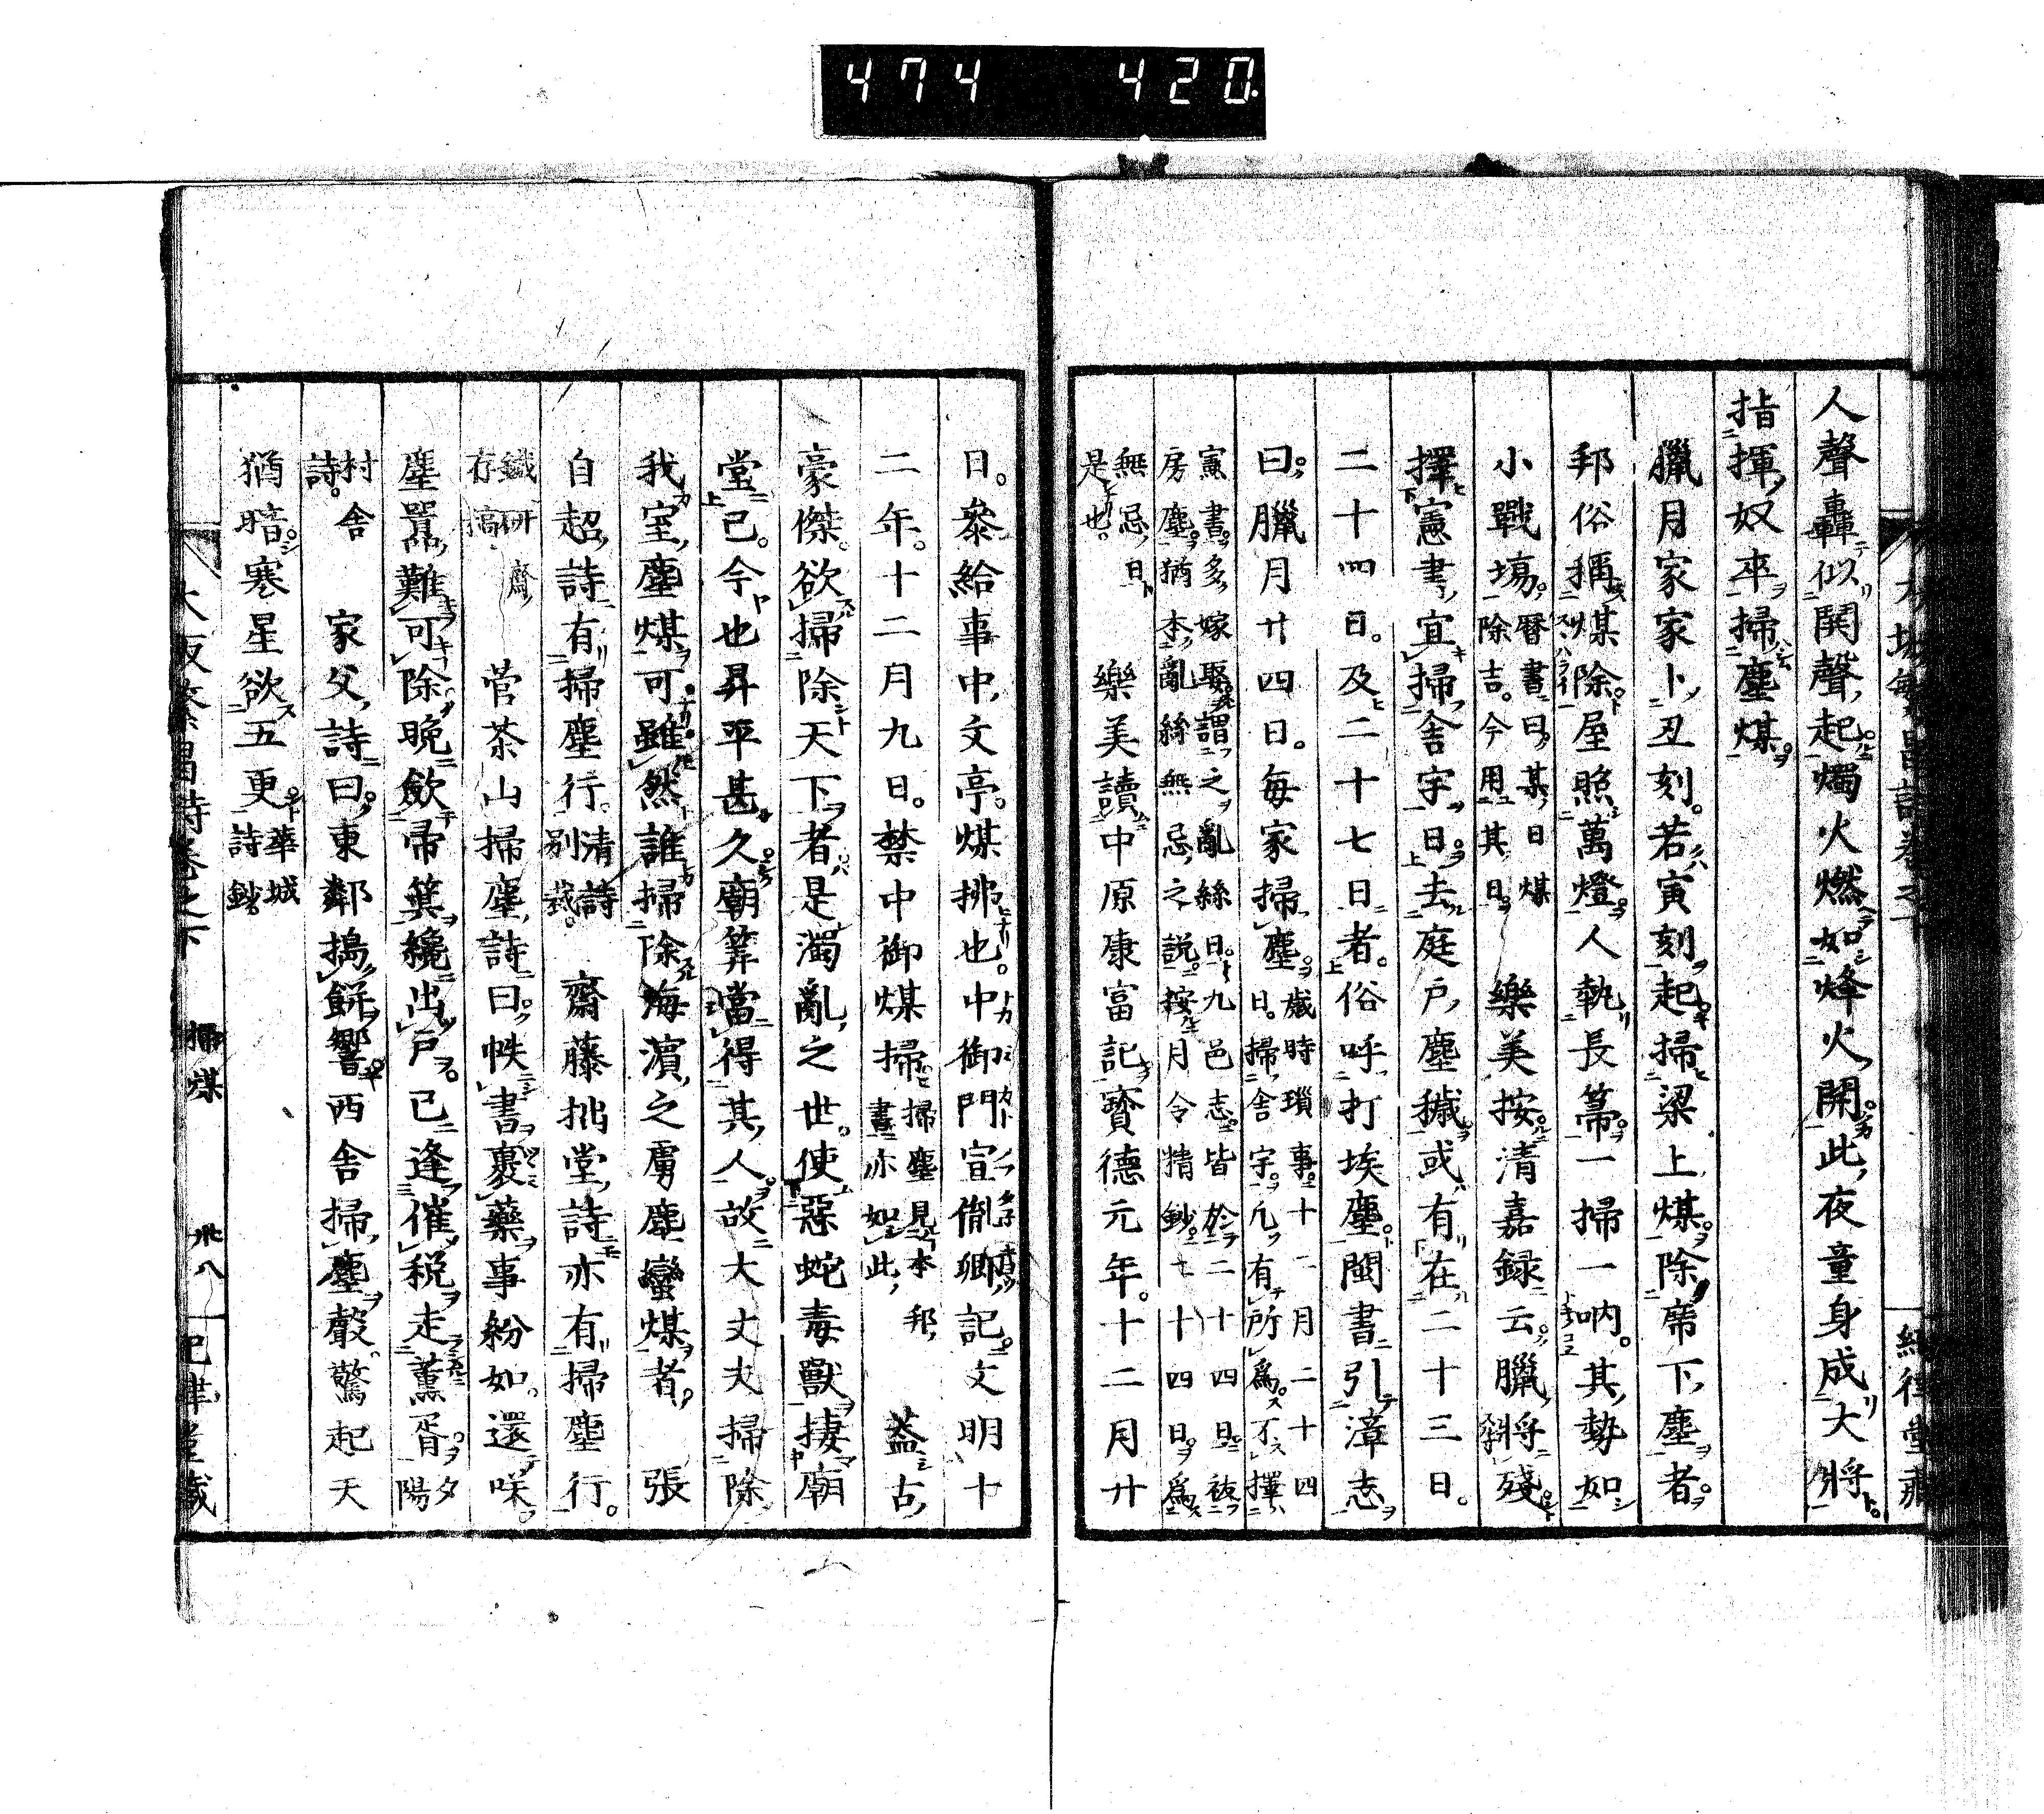 474 420
人聲轟似鬨聲起燭火燃如烽火開此夜童身成大將
指揮奴卒掃塵煤
臘月家家卜丑刻若寅刻起掃梁上煤除席下塵者
邦俗稱煤除屋照萬燈人執長箒一掃一吶其勢如
小戰場曆書曰某日煤除吉今用其日 樂美按清嘉録云臘將殘
擇憲書宜掃舍宇日去庭戶塵穢或有在二十三日
二十四日及二十七日者俗呼打埃塵閩書引漳志
曰臘月廿四日每家掃塵歲時瑣事十二月二十四日掃舍宇凡有所爲不擇
憲書多嫁娶謂之亂絲日九邑志皆於二十四日祓房塵猶本亂絲無忌之説按月令精鈔十二十四日爲
無忌日是也 樂美讀中原康富記寶德元年十二月廿
日參給事中文亭煤拂也中御門宣胤卿記文明十
二年十二月九日禁中御煤掃掃塵見本邦畫亦如此 蓋古
豪傑欲掃除天下者是濁亂之世使惡蛇毒獸捿廟
堂已今也昇平甚久廟筭當得其人故大丈夫掃除
我室塵煤可雖然誰掃除海濵之虜塵蠻煤者 張
自超詩有掃塵行清詩別裁 齋藤拙堂詩亦有掃塵行
鐵研齋存稿 菅茶山掃塵詩曰帙書裹藥事紛如還咲
塵囂難可除晚歛帚箕纔出戶已逢催税走薰胥夕陽
村舍詩 家父詩曰東鄰搗餅響西舍掃塵聲驚起天
猶暗寒星欲五更華城詩鈔
掃煤 卅八